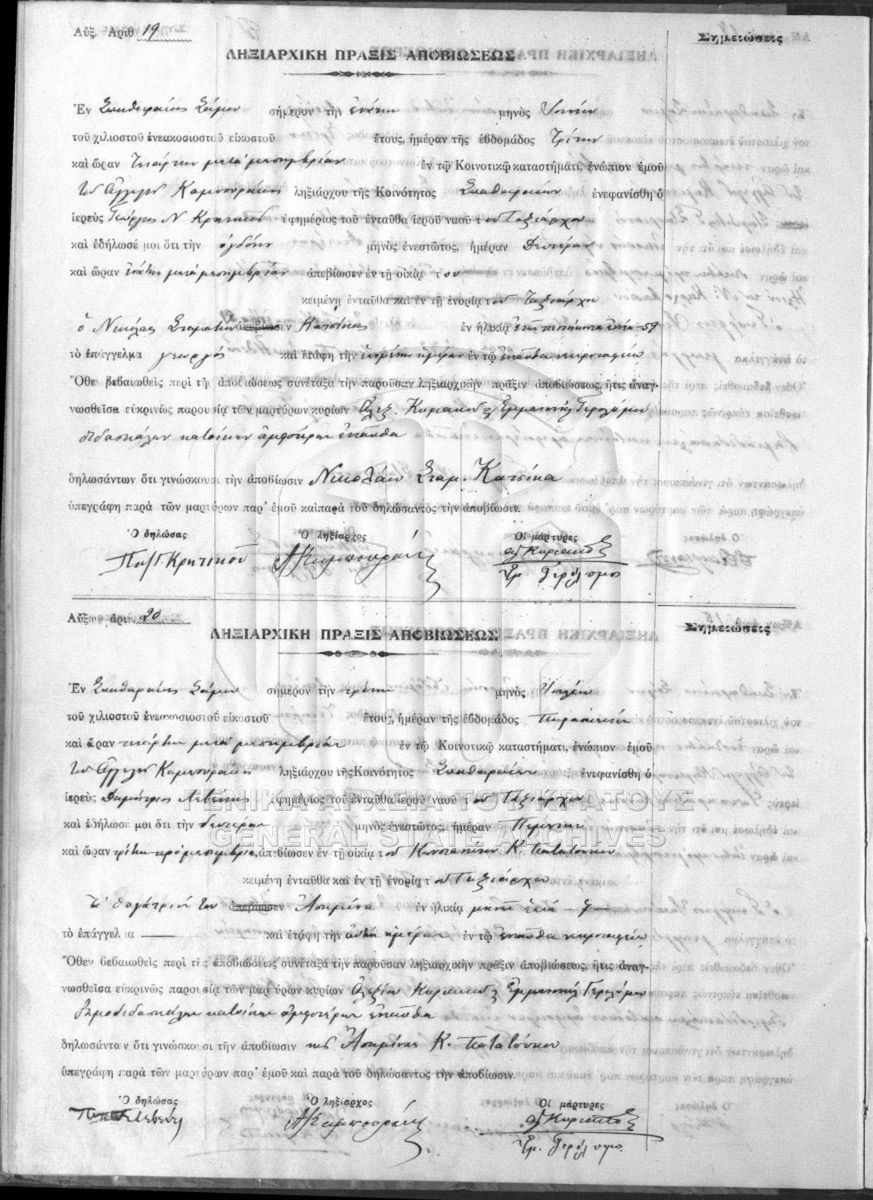 Αὔξ. Ἀριθ 19
Σημειώσεις
ΛΗΞΙΑΡΧΙΚΗ ΠΡΑΞΙΣ ΑΠΟΒΙΩΣΕΩΣ
Ἐν Σπαθαραίοις Σάμου σήμερον τὴν ἐνάτην μηνὸς Ἰουνίου
τοῦ χιλιοστοῦ ἐνεακοσιοστοῦ εἰκοστοῦ ἔτους, ἡμέραν τῆς ἑβδομάδος Τρίτην
καὶ ὥραν τετάρτην μετὰ μεσημβρίαν ἐν τῷ Κοινοτικῷ καταστήματι, ἐνώπιον ἐμοῦ
ληξιάρχου τῆς Κοινότητος Σπαθαραίων ἐνεφανίσθη ὁ
ἱερεὺς Γεώργιος Ν Κρητικὸς ἐφημέριος τοῦ ἐνταῦθα ἱεροῦ ναοῦ τῶν Ταξιαρχῶν
καὶ ἐδήλωσέ μοι ὅτι τὴν ὀγδόην μηνὸς ἐνεστῶτος, ἡμέραν Δευτέραν
καὶ ὥραν ἐνάτην μετὰ μεσημβρίαν ἀπεβίωσεν ἐν τῇ οἰκίᾳ του
κειμένῃ ἐνταῦθα καὶ ἐν τῇ ἐνορίᾳ τῶν Ταξιαρχῶν
ὁ Νικόλαος Σταματίου Κατσίκας ἐν ἡλικίᾳ ἐτῶν πεντήκοντα ἐννέα 59
τὸ ἐπάγγελμα γεωργὸς καὶ ἐτάφη τὴν ἑπομένην ἡμέραν ἐν τῷ ἐνταῦθα νεκροταφείῳ
Ὅθεν βεβαιωθεὶς περὶ τῆς ἀποβιώσεως συνέταξα τὴν παροῦσαν ληξιαρχικὴν πρᾶξιν ἀποβιώσεως, ἥτις ἀναγ-
νωσθεῖσα εὐκρινῶς παρουσίᾳ τῶν μαρτύρων κυρίων Ἀλεξ. Κυριακοῦ & Ἐμμανουὴλ Γερολύμου
διδασκάλων κατοίκων ἀμφοτέρων ἐνταῦθα
δηλωσάντων ὅτι γινώσκουσι τὴν ἀποβίωσιν Νικολάου Σταμ. Κατσίκα
ὑπεγράφη παρὰ τῶν μαρτύρων παρ' ἐμοῦ καὶ παρὰ τοῦ δηλώσαντος τὴν ἀποβίωσιν.
Ὁ δηλώσας Ὁ ληξίαρχος Οἱ μάρτυρες
Κρητικοῦ
Ἐμ. Γερόλυμος
Αὔξων ἀριθ. 20
Σημειώσεις
ΛΗΞΙΑΡΧΙΚΗ ΠΡΑΞΙΣ ΑΠΟΒΙΩΣΕΩΣ
Ἐν Σπαθαραίοις Σάμου σήμερον τὴν τρίτην μηνὸς Ἰουλίου
τοῦ χιλιοστοῦ ἐνεακοσιοστοῦ εἰκοστοῦ ἔτους, ἡμέραν τῆς ἑβδομάδος Παρασκευὴν
καὶ ὥραν τετάρτην μετὰ μεσημβρίαν ἐν τῷ Κοινοτικῷ καταστήματι, ἐνώπιον ἐμοῦ
ληξιάρχου τῆς Κοινότητος Σπαθαραίων ἐνεφανίσθη ὁ
ἱερεὺς Δημήτριος ἐφημέριος τοῦ ἐνταῦθα ἱεροῦ ναοῦ τῶν Ταξιαρχῶν
καὶ ἐδήλωσέ μοι ὅτι τὴν δευτέραν μηνὸς ἐνεστῶτος, ἡμέραν Πέμπτην
καὶ ὥραν τρίτην πρὸ μεσημβρίας ἀπεβίωσεν ἐν τῇ οἰκίᾳ τοῦ Κωνσταντίνου Κ.
κειμένῃ ἐνταῦθα καὶ ἐν τῇ ἐνορίᾳ τῶν Ταξιαρχῶν
Τὸ θυγάτριόν του Ἀσημίνα ἐν ἡλικίᾳ μηνῶν ἑπτὰ 7
τὸ ἐπάγγελμα — καὶ ἐτάφη τὴν αὐτὴν ἡμέραν ἐν τῷ ἐνταῦθα νεκροταφείῳ
Ὅθεν βεβαιωθεὶς περὶ τῆς ἀποβιώσεως συνέταξα τὴν παροῦσαν ληξιαρχικὴν πρᾶξιν ἀποβιώσεως, ἥτις ἀναγ-
νωσθεῖσα εὐκρινῶς παρουσίᾳ τῶν μαρτύρων κυρίων Ἀλεξίου Κυριακοῦ & Ἐμμανουὴλ Γερολύμου
δημοδιδασκάλων κατοίκων ἀμφοτέρων ἐνταῦθα
δηλωσάντων ὅτι γινώσκουσι τὴν ἀποβίωσιν τῆς Ἀσημίνας Κ.
ὑπεγράφη παρὰ τῶν μαρτύρων παρ' ἐμοῦ καὶ παρὰ τοῦ δηλώσαντος τὴν ἀποβίωσιν.
Ὁ δηλώσας Ὁ ληξίαρχος Οἱ μάρτυρες
Ἐμ. Γερόλυμος
ΓΕΝΙΚΑ ΑΡΧΕΙΑ ΤΟΥ ΚΡΑΤΟΥΣ
GENERAL STATE ARCHIVES